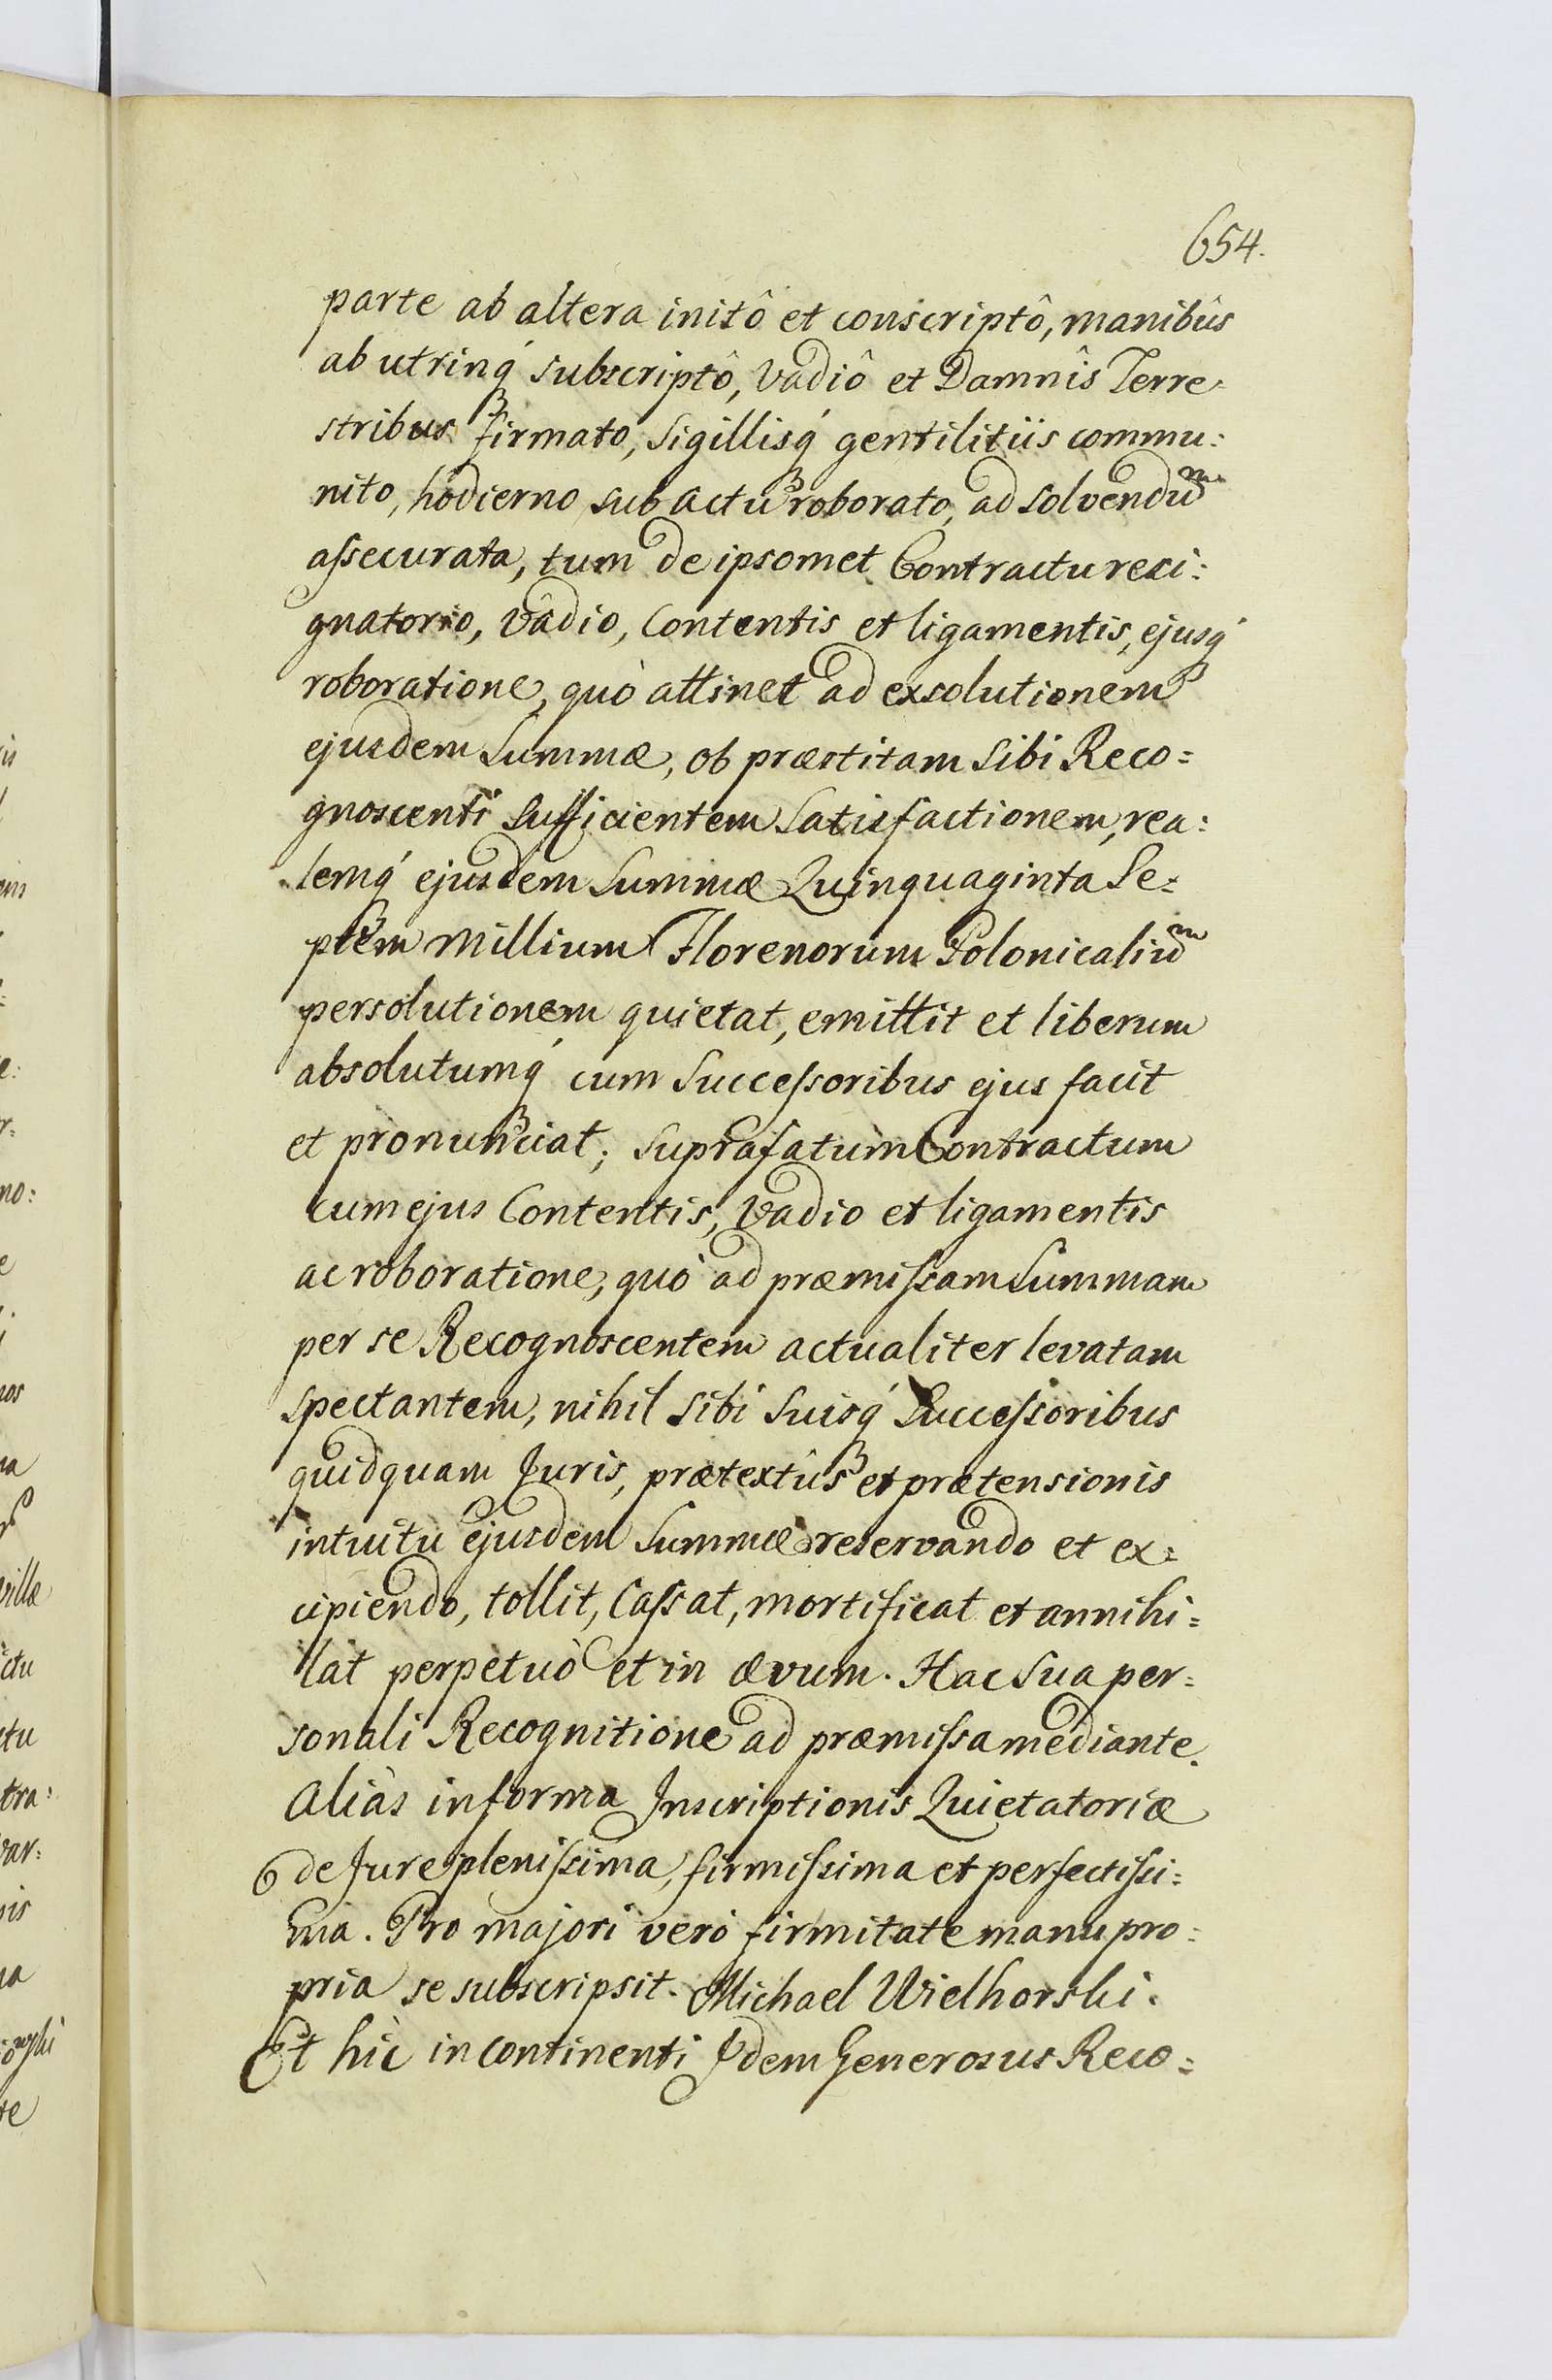 654.
parte ab altera initô et conscriptô, manibûs
ab utrinq́ subscriptô, Vadiô et Damnîs Terre-
stribus firmato, Sigillisq́ gentilitiis commu:
nito, hodierno sub actu roborato, ad solvendũ
aſsecurata, tum de ipsomet Contractu resi:
gnatorio, Vadio, Contentis et ligamentis, ejusq́
roboratione, quò attinet ad exsolutionem
ejusdem Summæ, ob præstitam sibi Reco=
gnoscenti sufficientem Satisfactionem, rea:
lemq́ ejusdem Summæ Quinquaginta Se=
ptem Millium Florenorum Polonicaliũ
persolutionem quietat, emittit et liberum
absolutumq́ cum Succeſsoribus ejus facit
et pronunciat; suprafatum Contractum
cum ejus Contentis, Vadio et ligamentis
ac roboratione, quò ad præmiſsam Summam
per se Recognoscentem actualiter levatam
spectantem, nihil sibi suisq́ Succeſsoribus
quidquam Juris, prætextûs et prætensionis
intuitu ejusdem Summæ reservando et ex=
cipiendo, tollit, Caſsat, mortificat et annihi=
lat perpetuò et in ævum. Hac sua per=
sonali Recognitione ad præmiſsa mediante.
Aliàs in forma Inscriptionis Quietatoriæ
de Jure pleniſsima, firmiſsima et perfectiſsi=
ma. Pro majori verò firmitate manu pro=
pria se subscripsit. Michael Wielhorski.
Et hìc in Continenti Idem Generosus Reco=